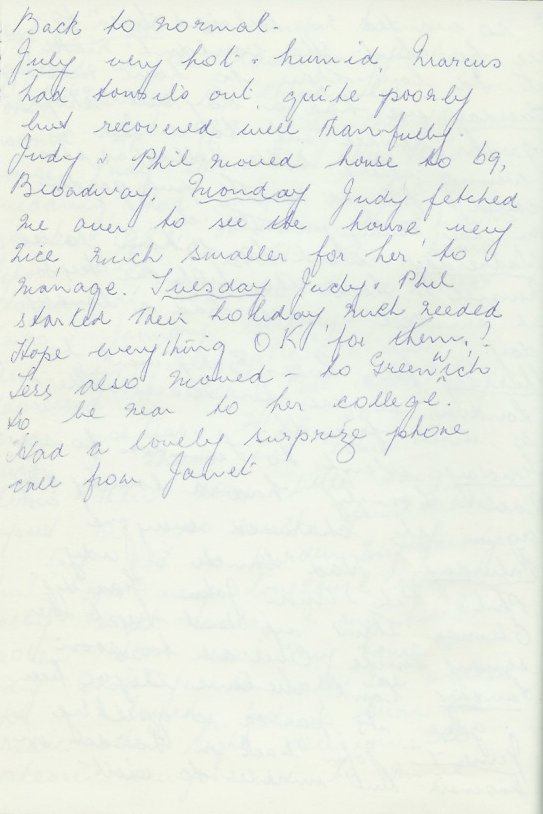 Back to normal.
July very hot & humid, Marcus
had tonsils out, quite poorly
but recovered well thankfully.
Judy & Phil moved house to 69,
Broadway. Monday Judy fetched
me over to see the house, very
nice much smaller for her to
manage. Tuesday Judy & Phil
started their holiday much needed
Hope everything OK for them.!
Less also moved – to Greenwich
to be near to her college.
Had a lovely surprize phone
call from Janet